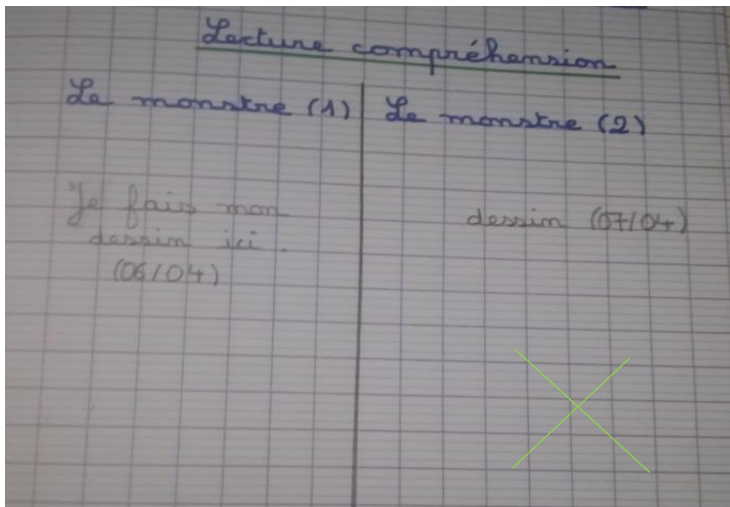 Lecture compréhension
Le monstre (1)
Je fais mon
dessin ici.
(06/04)
Le monstre (2)
dessin (07/04)